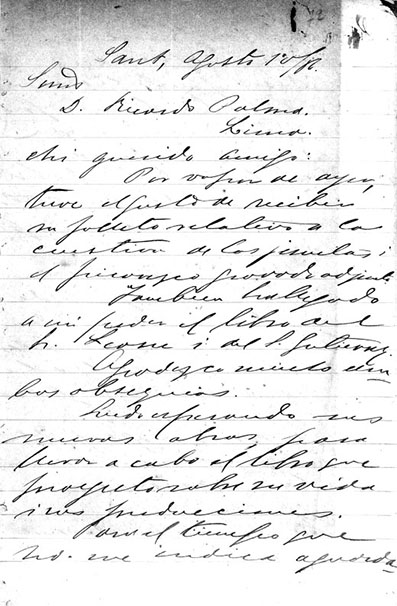 Sant, Agosto 10/86.
Señor
D. Ricardo Palma.
Lima.
Mi querido amigo:
Por vapor de ayer,
tuve el gusto de recibir
su folleto relativo a la
cuestion de los jesuitas i
el precioso grabado adjunto.
Tambien ha llegado
a mi poder el libro del
S. i del S. Gutierrez.
Agradezco mucho am-
bos obsequios.
Quedo esperando sus
nuevas obras, para
llevar a cabo el libro que
proyecto sobre su vida
i sus producciones.
Por el tiempo que
Ud. me indica aguarda-